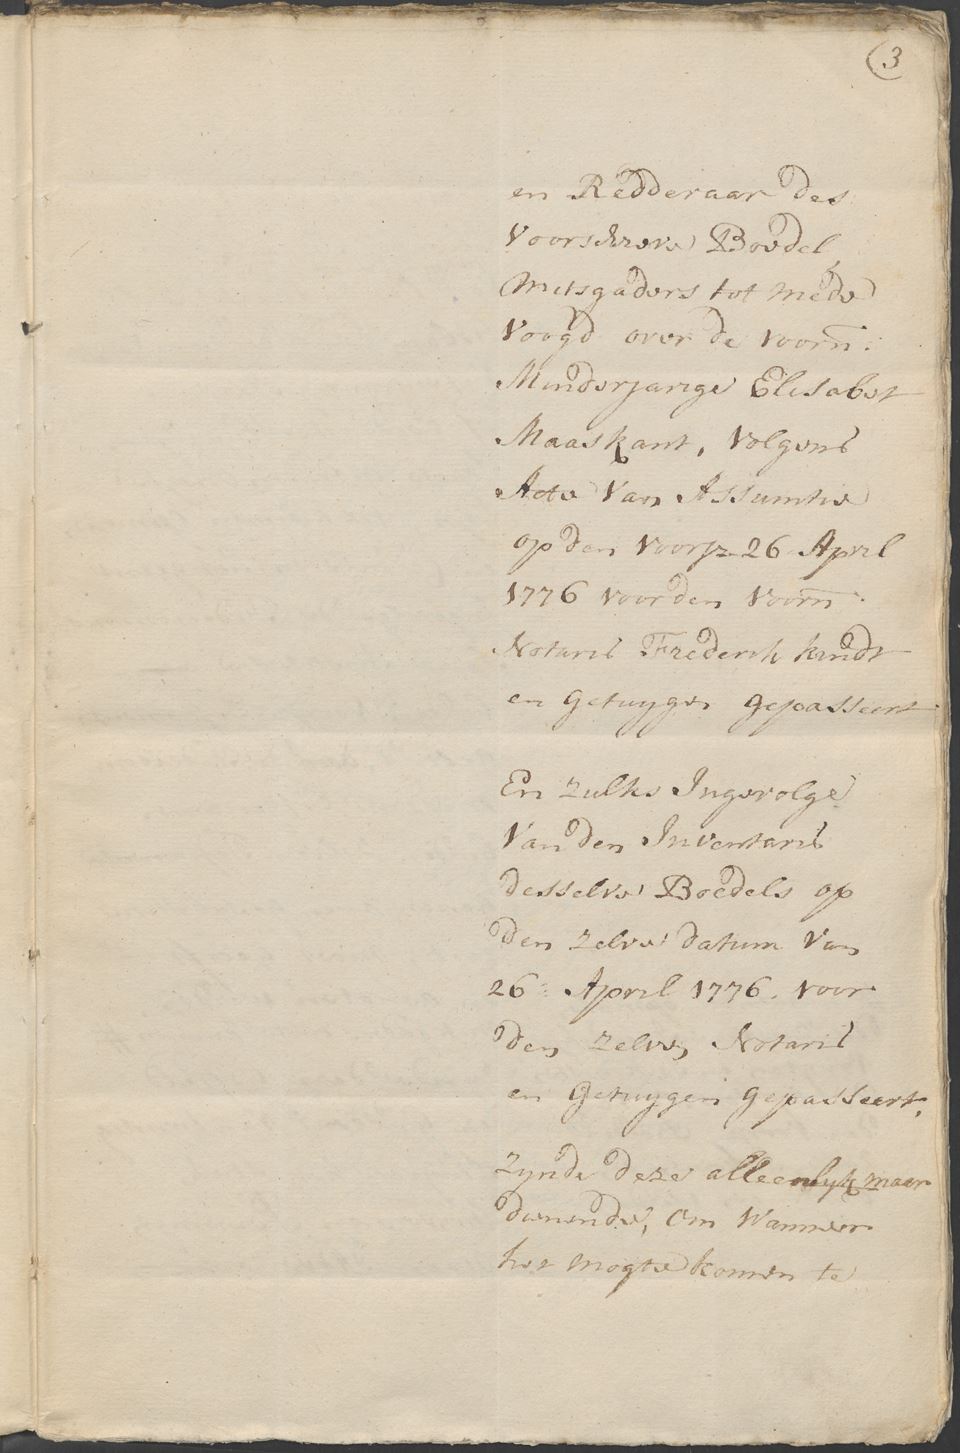 3
en Redderaar des
voorschreve Boedel
Mitsgaders tot mede
Voogd over de voorn:
Minderjarige Elisabet
Maaskant, Volgens
Acte Van Assumtie
op den voorsz 26 April
1776 voor den voorn:
Notaris Frederik kindt
en Getuygen gepasseert
En zulks Ingevolge
Van den Inventaris
desselve Boedels op
den zelve datum Van
26: April 1776. voor
den zelven Notaris
en Getuygen gepasseert,
Zynde deze alleenlyk maar
dienende, Om Wanneer
het mogte komen te